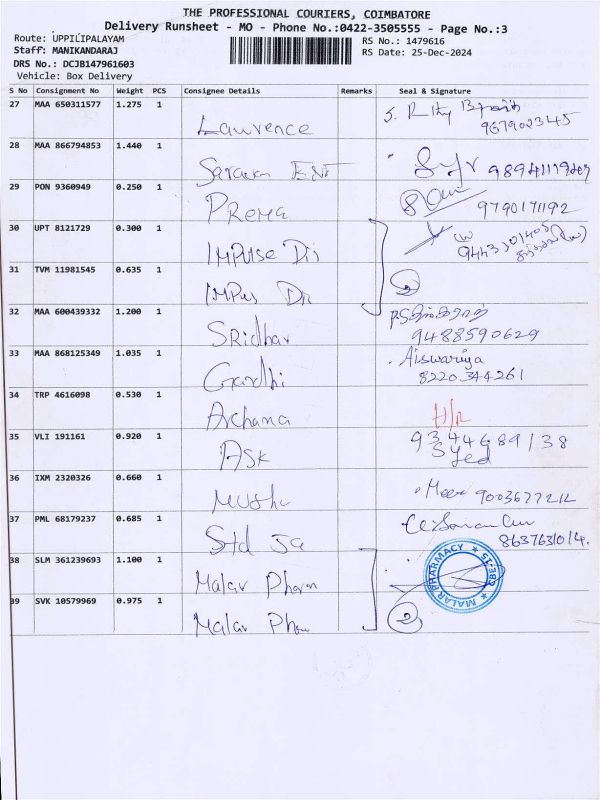 THE PROFESSIONAL COURIERS, COIMBATORE
Delivery Runsheet - MO - Phone No.:0422-3505555 - Page No.:3
Route: UPPILIPALAYAM
RS No.: 1479616
Staff: MANIKANDARAJ
RS Date: 25-Dec-2024
DRS No.: DCJB147961603
Vehicle: Box Delivery
S No Consignment No Weight PCS Consignee Details Remarks Seal & Signature
27 MAA 650311577 1.275 1 Lawrence 9679023345
28 MAA 866794853 1.440 1 Saravan ENT
29 PON 9360949 0.250 1 PREMA 9790171192
30 UPT 8121729 0.300 1 IMPulse Dis
31 TVM 11981545 0.635 1 IMPus Dis 2
32 MAA 600439332 1.200 1 SRidhar 9488590629
33 MAA 868125349 1.035 1 Gandhi Aiswariya 8220344261
34 TRP 4616098 0.530 1 Archana
35 VLI 191161 0.920 1 ASK 9344689138 Syed
36 IXM 2320326 0.660 1 9003677212
37 PML 68179237 0.685 1 Std 8637631014.
38 SLM 361239693 1.100 1 Malar Pharm
MALAR PHARMACY
39 SVK 10579969 0.975 1 Malar 2